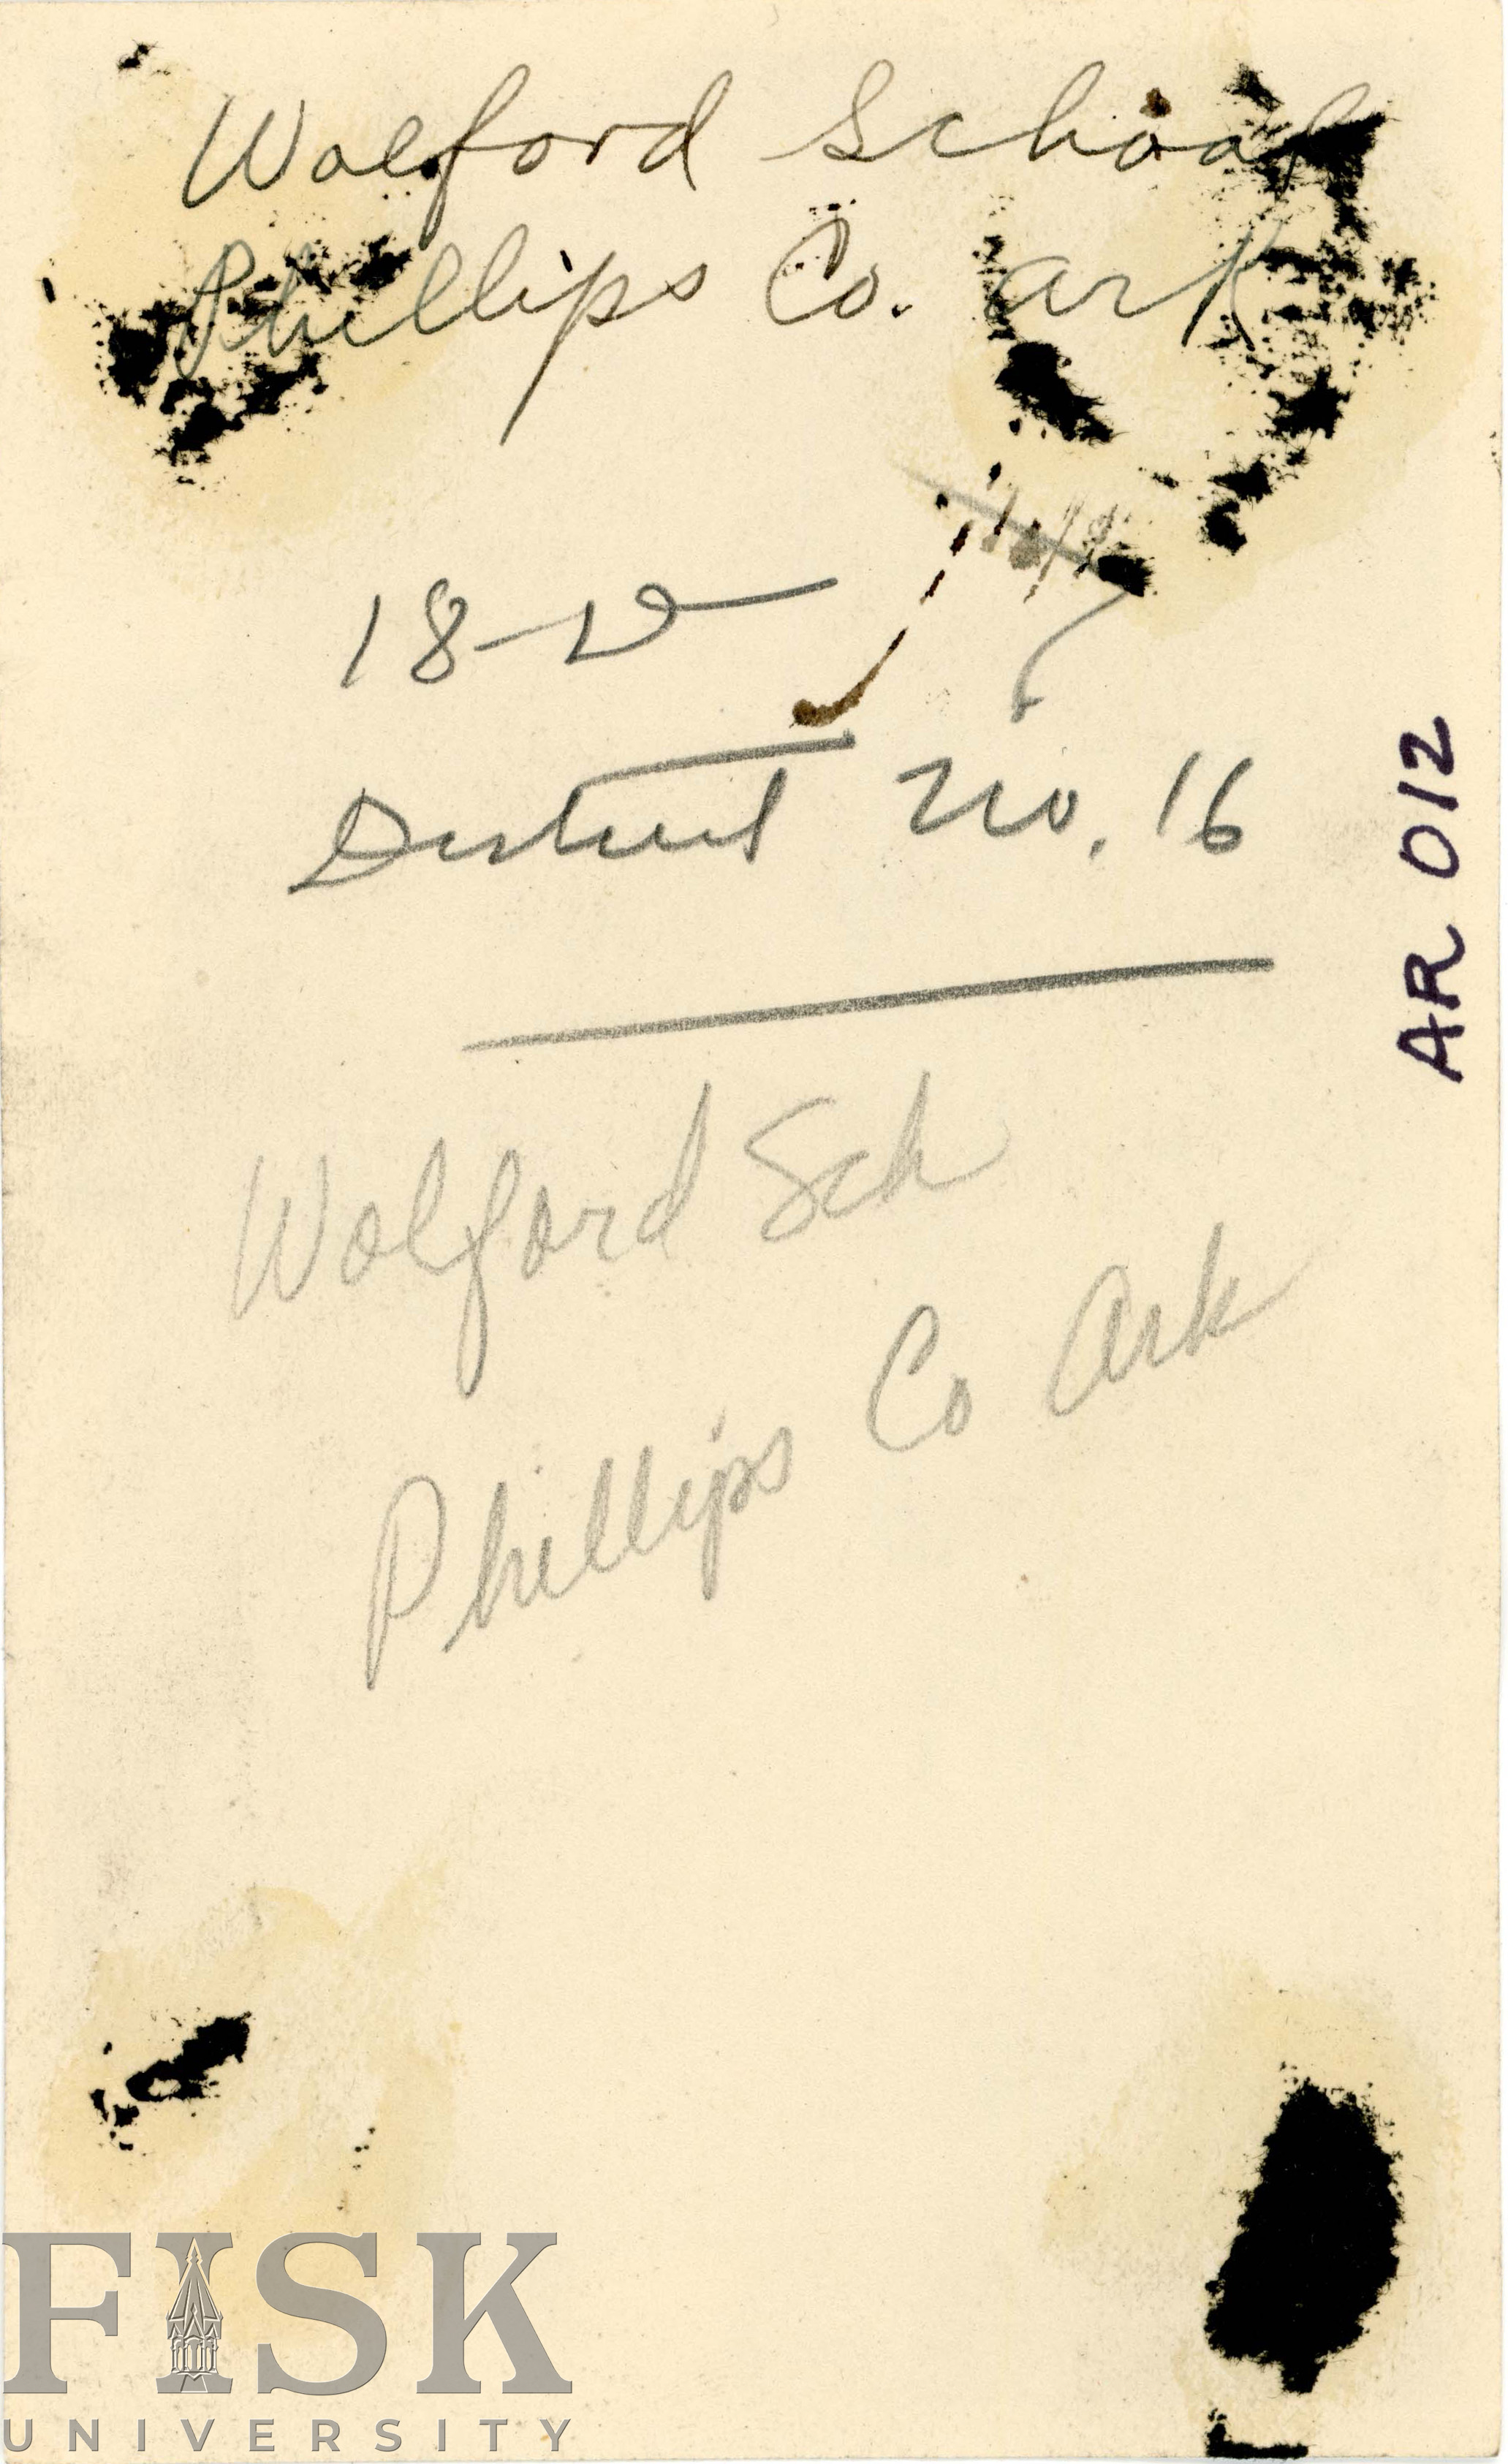 Wolford School
Phillips Co. Ark
18-D
District No. 16
AR 012
Wolford Sch
Phillips Co Ark
FISK
UNIVERSITY